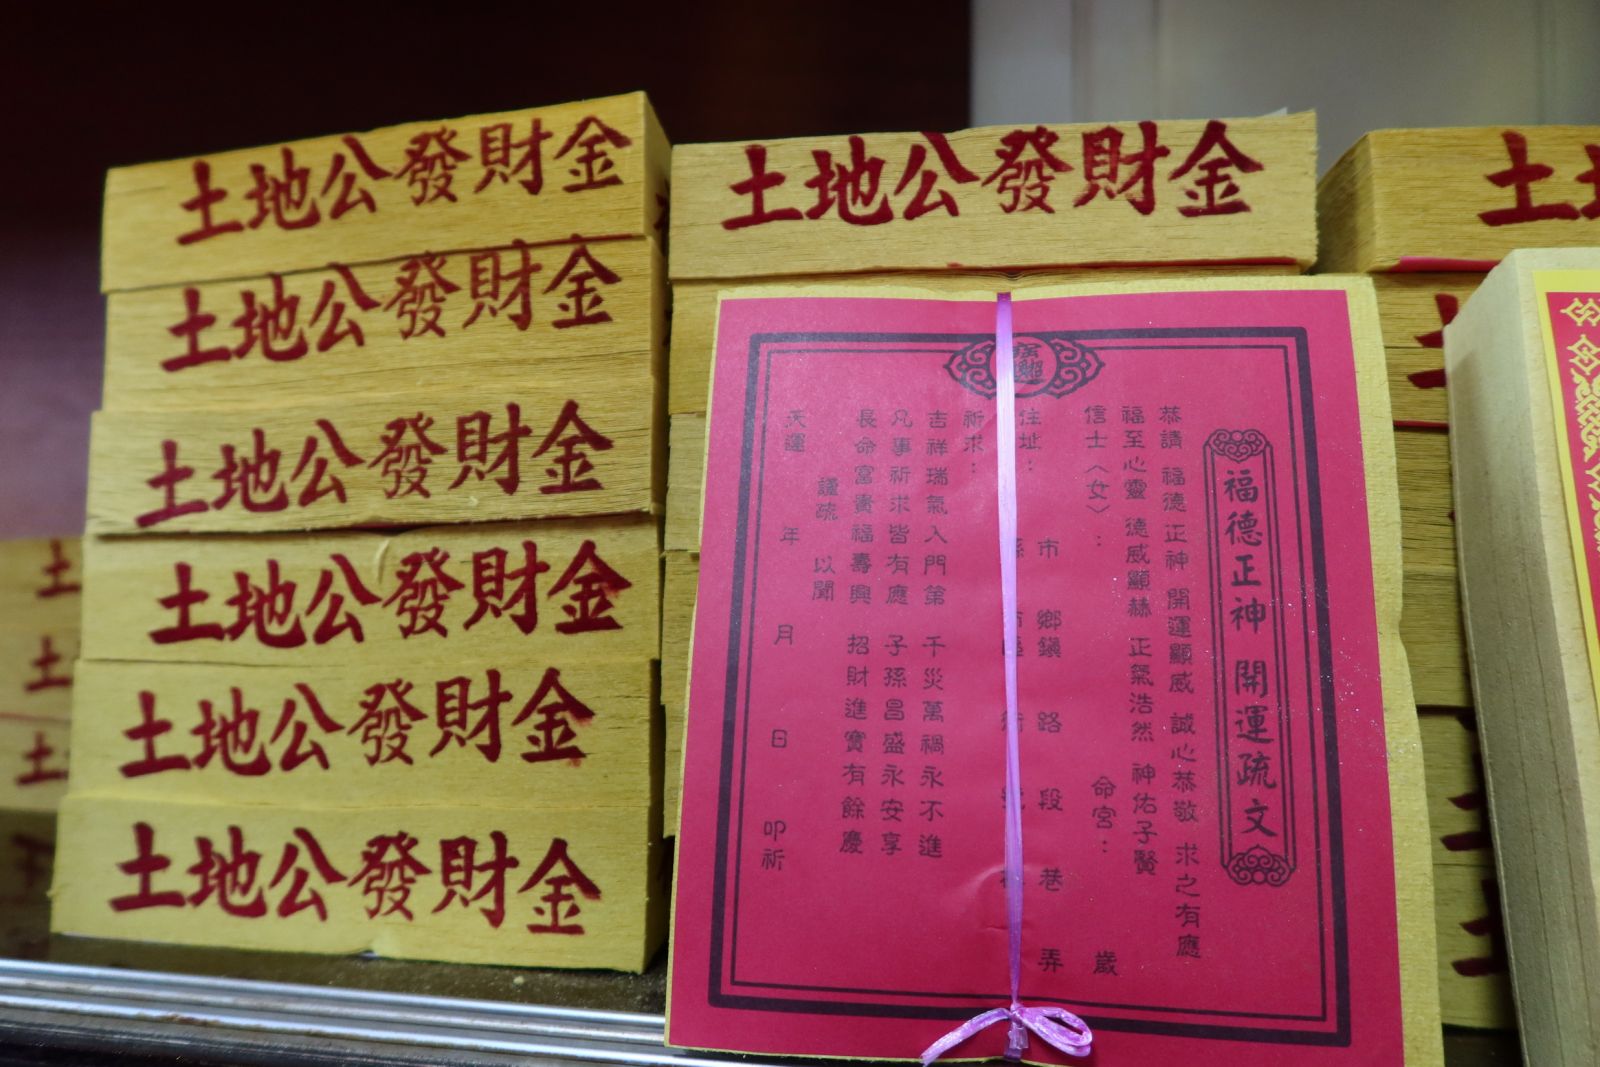 土地公發財金
土地公發財金
土地公發財金
土地公發財金
土地公發財金
土地公發財金
土地公發財金
土
土
土
土
福德正神 開運疏文
恭請 福德正神 開運顯威 誠心恭敬 求之有應
福至心靈 德威顯赫 正氣浩然 神佑子賢
信士〈女〉: 命宮: 歲
住址: 市 鄉鎮 路 段 巷 弄
祈求:
吉祥瑞氣入門第 千災萬禍永不進
凡事祈求皆有應 子孫昌盛永安享
長命富貴福壽興 招財進寶有餘慶
謹疏 以聞
天運 年 月 日 叩祈